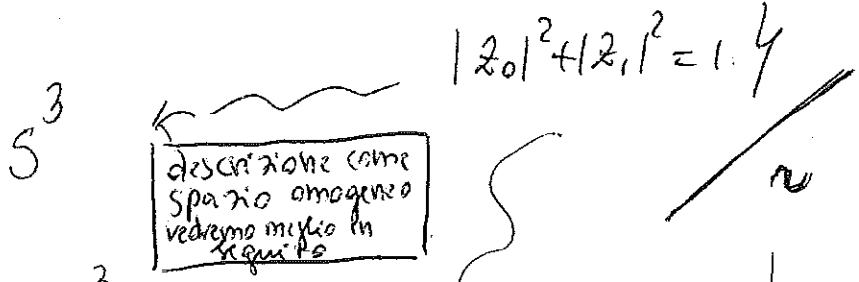 |z₀|² + |z₁|² = 1. }
S³
descrizione come
spazio omogeneo
vedremo meglio in
seguito
~
2